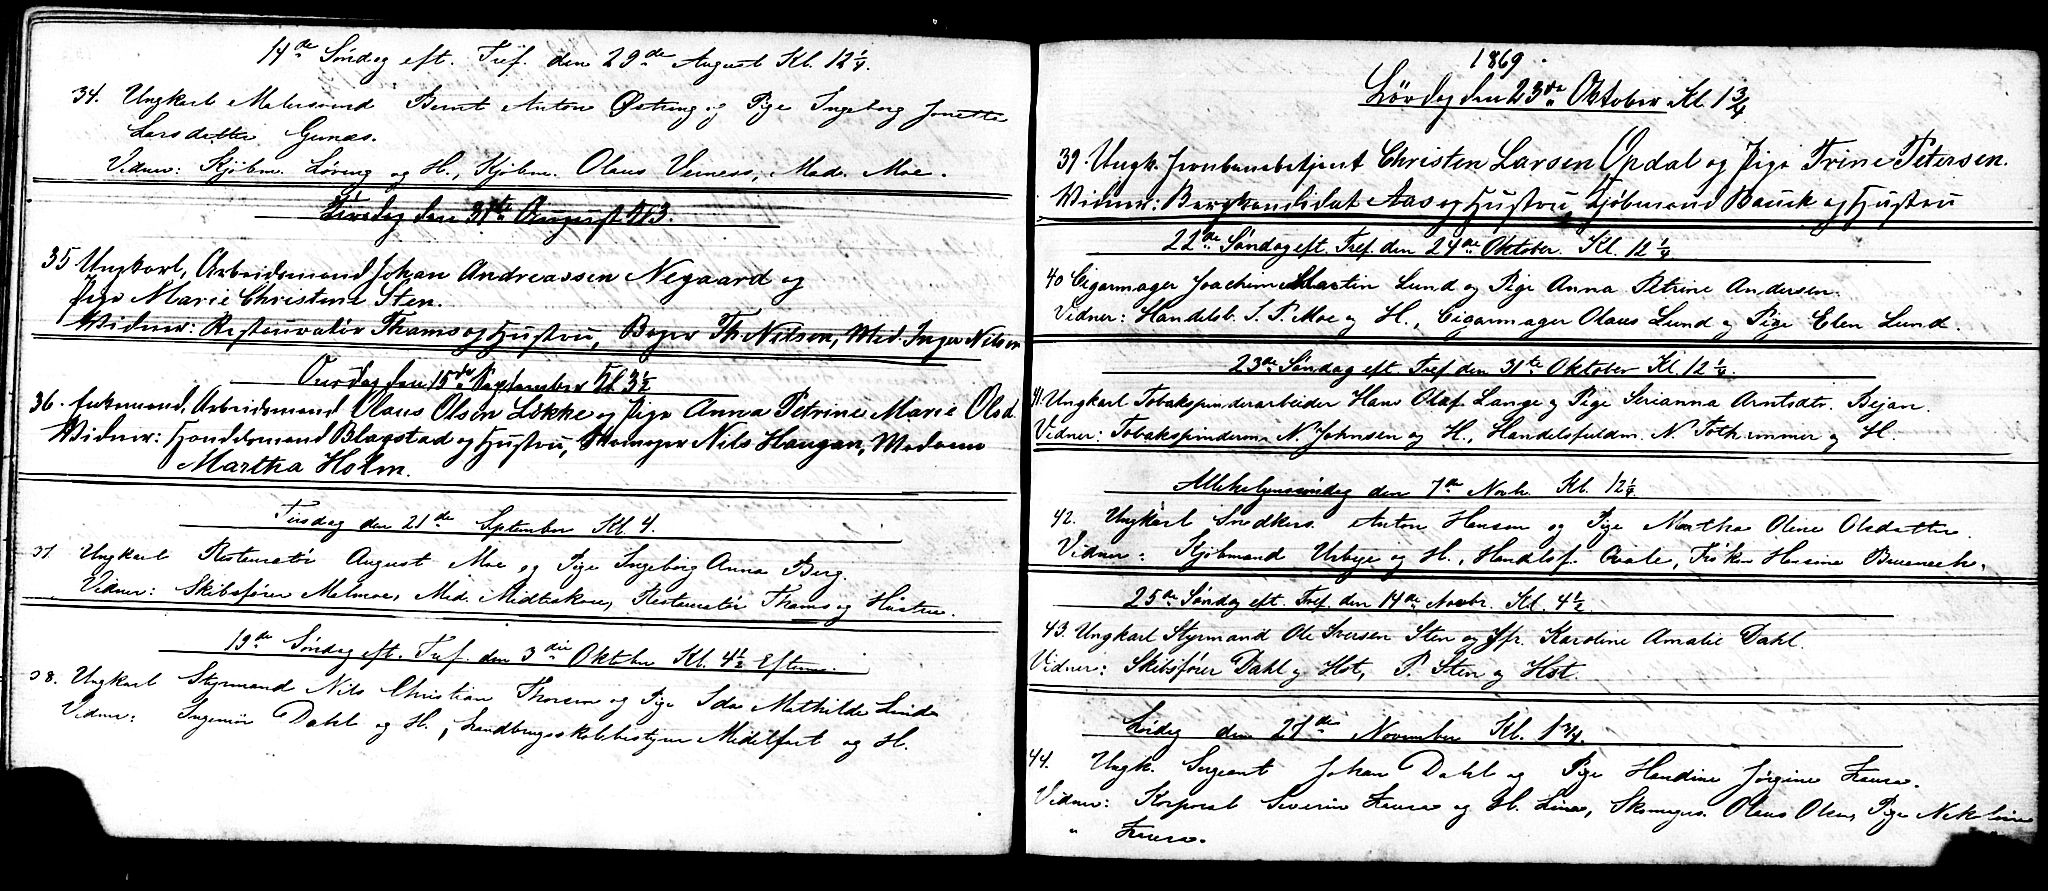 14de Søndag eft. Tref. den 29de August Kl. 12¼.
34. Ungkarl Malersvend Bernt Anton Østring og Pige Ingeborg Jonette
Larsdatter Gunæs.
Vidner: Kjøbm. Løring og H., Kjøbm. Olaus Verness, Mad. Moe.
Tirsdag den 31te August Kl 3.
35 Ungkarl, Arbeidsmand Johan Andreassen Negaard og
Pige Marie Christine Sten.
Vidner: Restauratør Thams og Hustru, Bager Th Nilsen, Md. Inger Nilsen
Onsdag den 15de September Kl 3½
36. Enkemand, Arbeidsmand Olaus Olsen Løkke og Pige Anna Petrine Marie Olsd.
Vidner: Handelsmand Blagstad og Hustru, Skomager Nils Haugan, Madame
Martha Holm.
Tirsdag den 21de September Kl. 4.
37. Ungkarl Restauratør August Moe og Pige Ingeborg Anna Berg.
Vidner: Skibsfører Melmoe, Md. Midtskou, Restauratør Thams og Hustru.
19de Søndag eft. Tref. den 3die Oktbr Kl. 4½ Efterm.
38. Ungkarl Styrmand Nils Christian Thorsen og Pige Ida Mathilde Linde
Vidner: Ingeniør Dahl og H., Landbrugsskolebestyrer Middelfart og H.
1869.
Lørdag den 23de Oktober Kl. 1¾
39. Ungk. Jernbanebetjent Christen Larsen Opdal og Pige Trine Petersen.
Vidner: Bergkandidat Aas og Hustru, Kjøbmand Bauck og Hustru
22de Søndag eft. Tref. den 24de Oktober. Kl. 12¼
40 Cigarmager Joachim Martin Lund og Pige Anna Petrine Andersen.
Vidner: Handelsb. S. P. Moe og H., Cigarmager Olaus Lund og Pige Elen Lund.
23de Søndag eft Tref den 31te Oktober Kl. 12¼.
41. Ungkarl Tobakspinderarbeider Hans Olaf Lange og Pige Serianna Arntsdtr. Bejan.
Vidner: Tobakspinderm. N. Johnsen og H., Handelsfuldm. N. Tothammer og H.
Allehelgenssøndag den 7de Novbr. Kl. 12¼.
42. Ungkarl Snedkers. Anton Hansen og Pige Martha Oline Olsdatter.
Vidner: Kjøbmand Urbye og H., Handlsf. Qvale, Frøken Hassine Buueneck.
25de Søndag eft. Tref. den 14de Novbr. Kl. 4½
43. Ungkarl Styrmand Ole Iversen Sten og Jfr. Karoline Amalie Dahl.
Vidner: Skibsfører Dahl og Hst, P. Sten og Hst.
Lørdag den 27de November Kl. 1¾.
44. Ungk. Sergeant Johan Dahl og Pige Handine Jørgine Faura.
Vidner: Korporal Severin Faura og H. Lina, Skomagers. Olaus Olsen, Pige Nikoline
" Faura.